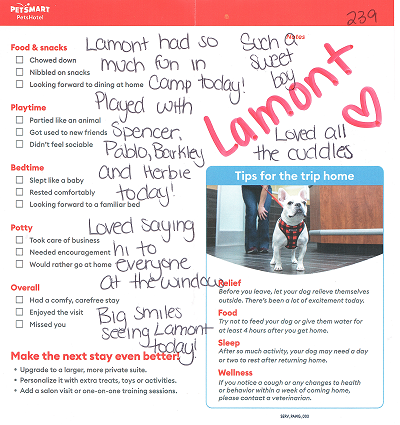 PETSMART
PetsHotel
239
Food & snacks
Chowed down
Nibbled on snacks
Looking forward to dining at home
Playtime
Partied like an animal
Got used to new friends
Didn't feel sociable
Bedtime
Slept like a baby
Rested comfortably
Looking forward to a familiar bed
Potty
Took care of business
Needed encouragement
Would rather go at home
Overall
Had a comfy, carefree stay
Enjoyed the visit
Missed you
Lamont had so
much fun in
Camp today!
Played with
Spencer,
Pablo, Barkley
and Herbie
today!
Loved saying
hi to
everyone
at the window
Big smiles
seeing Lamont
today!
Notes
Such a
sweet
boy
Lamont
Loved all
the cuddles
Tips for the trip home
Relief
Before you leave, let your dog relieve themselves
outside. There's been a lot of excitement today.
Food
Try not to feed your dog or give them water for
at least 4 hours after you get home.
Sleep
After so much activity, your dog may need a day
or two to rest after returning home.
Wellness
If you notice a cough or any changes to health
or behavior within a week of coming home,
please contact a veterinarian.
Make the next stay even better!
• Upgrade to a larger, more private suite.
• Personalize it with extra treats, toys or activities.
• Add a salon visit or one-on-one training sessions.